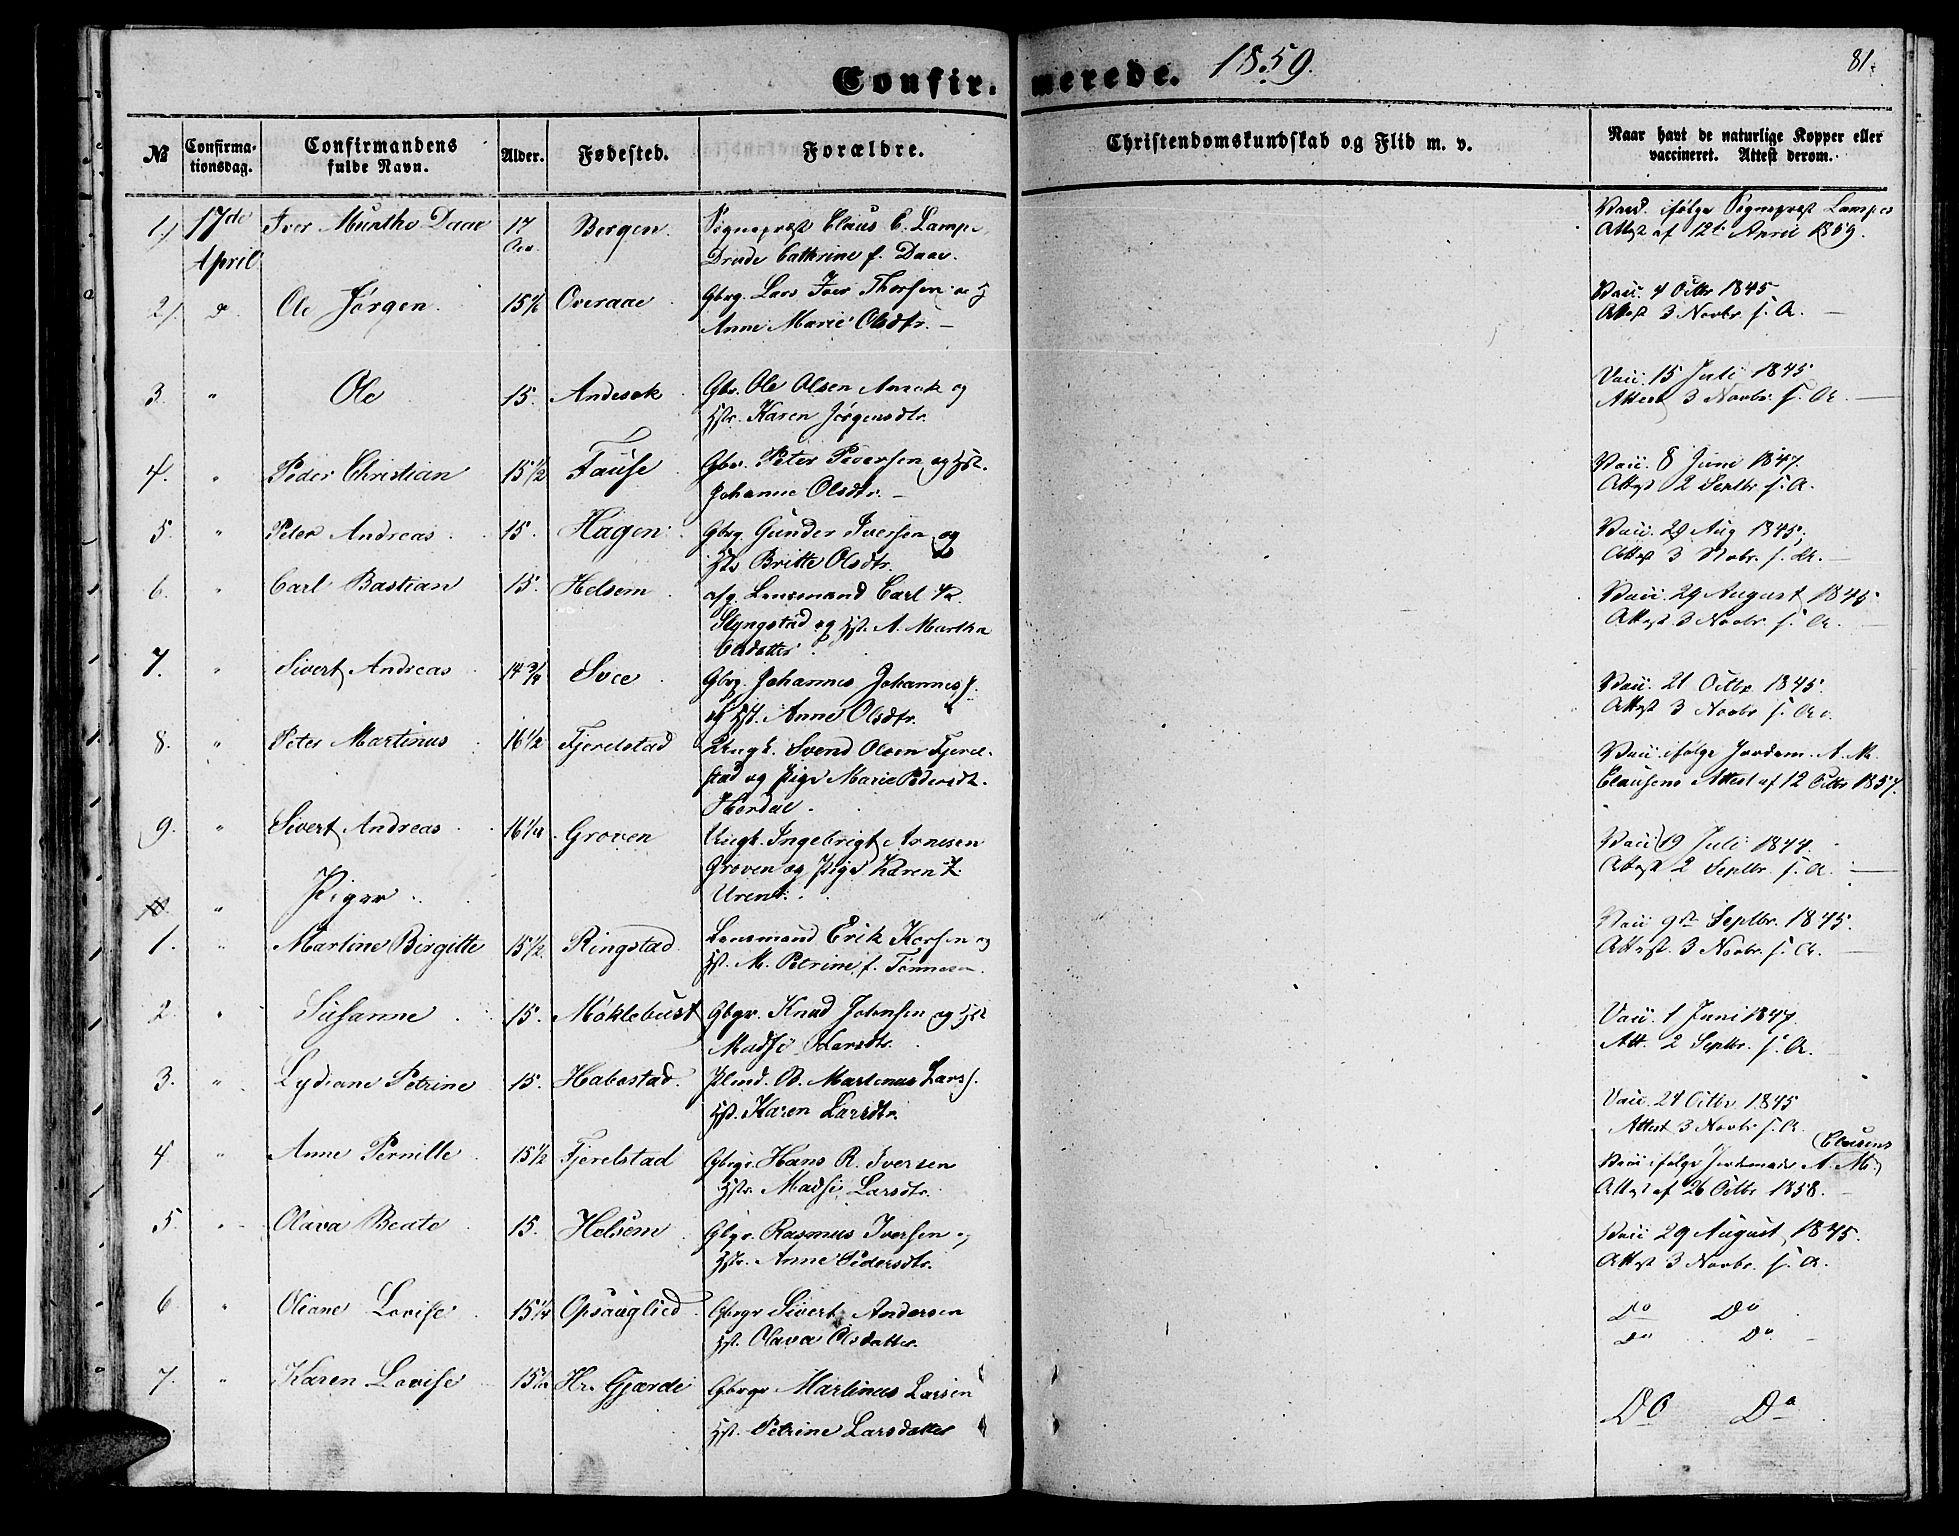 Confir. merede. 1859.
81.
№ Confirmationsdag. Confirmandens fulde Navn. Alder. Fødested. Forældre. Christendomskundskab og Flid m. v. Naar havt de naturlige Kopper eller vaccineret. Attest derom.
1) 17de April Iver Munthe Daae 17 Bergen. Sognepræst Claus C. Lampe, Vacc. ifølge Sognepræst Lampes
Drude Cathrine f. Daae. Attest af 12te April 1859.
2) Ole Jørgen. 15 Overaae Gbrg. Lars Iver Thorsen og Vacc. 4 Octbr 1845
Anne Marie Olsdtr. — Attest 3 Novbr. s. A. —
3. " Ole 15. Andesok Gbr. Ole Olsen og Vacc. 15 Juli 1845
Hstr. Karen Jørgensdtr. Attest 3 Novbr. s. A. —
4. " Peder Christian 15 1/2 Fause Gbr. Peter Pedersen og Hst. Vacc. 8 Juni 1847.
Johanne Olsdtr. — Attest 2 Septbr. s. A.
5. " Peter Andreas 15. Hagen Gbrg. Gunder Iversen og Vacc. 29 Aug 1845
Hst. Britte Olsdtr. Attest 3 Nobr. s. A. —
6. " Carl Bastian 15. Helsem afg. Lensmand Carl Vacc. 29 August 1845
Slyngstad og Hst. A. Martha Attest 3 Novbr. s. A. —
Olsdatter.
7. " Sivert Andreas 14 3/4 Svee Gbrg. Johannes Johanness. Vacc. 21 Octbr 1845.
og Hst. Anne Olsdtr. Attest 3 Novbr. s. A.
8. " Peter Martinus 16 1/2 Fjerelstad Ungk. Svend Olsen Fjerel- Vacc. ifølge Jordem. A. M.
stad og Pige Marie Pedersdt. Clausens Attest af 12 Octbr 1857.
Herdal.
9. " Sivert Andreas 16 1/4 Groven Ungk. Ingebrigt Arnesen Vacc. 19 Juli 1844.
Groven og Pige Karen Attest 2 Septbr. s. A. —
10. " Piger.
1. " Martine Birgitte 15 1/2 Ringstad Lensmand Erik Korsen og Vacc 9de Septbr. 1845.
Hst. M. Petrine f. Attest. 3 Novbr. s. A. —
2. " Susanne 15. Møklebust Gbgr. Knud Johnsen og Hst Vacc. 1 Juni 1847.
Madsi Larsdtr. Att. 2 Septbr. s. A.
3. " Lydiane Petrine 15. Habostad. Martinus Larss. Vacc. 24 Octbr 1845
Hst. Karen Larsdtr. Attest 3 Novbr s. A.
4. " Anne Pernille 15 1/2 Fjerelstad Gbrgr. Hans R. Iversen Vacc ifølge A. M. Clausens
Hstr. Madsi Larsdtr. Attest af 26 Octbr 1858. —
5. " Olava Beate 15. Helsem Gbgr. Rasmus Iversen og Vacc 29 August 1845.
Hstr. Anne Pedersdtr. Attest 3 Novbr. s. A.
6 " Oliane Lovise 15 1/4 Opsauglied Gbrgr Sivert Andersen Do Do
Hst. Olava Olsdatter. Do Do
7. " Karen Lovise 15 1/2 Hr. Gjærde Gbrgr Martinus Larsen Do Do
Hst. Petrine Larsdatter